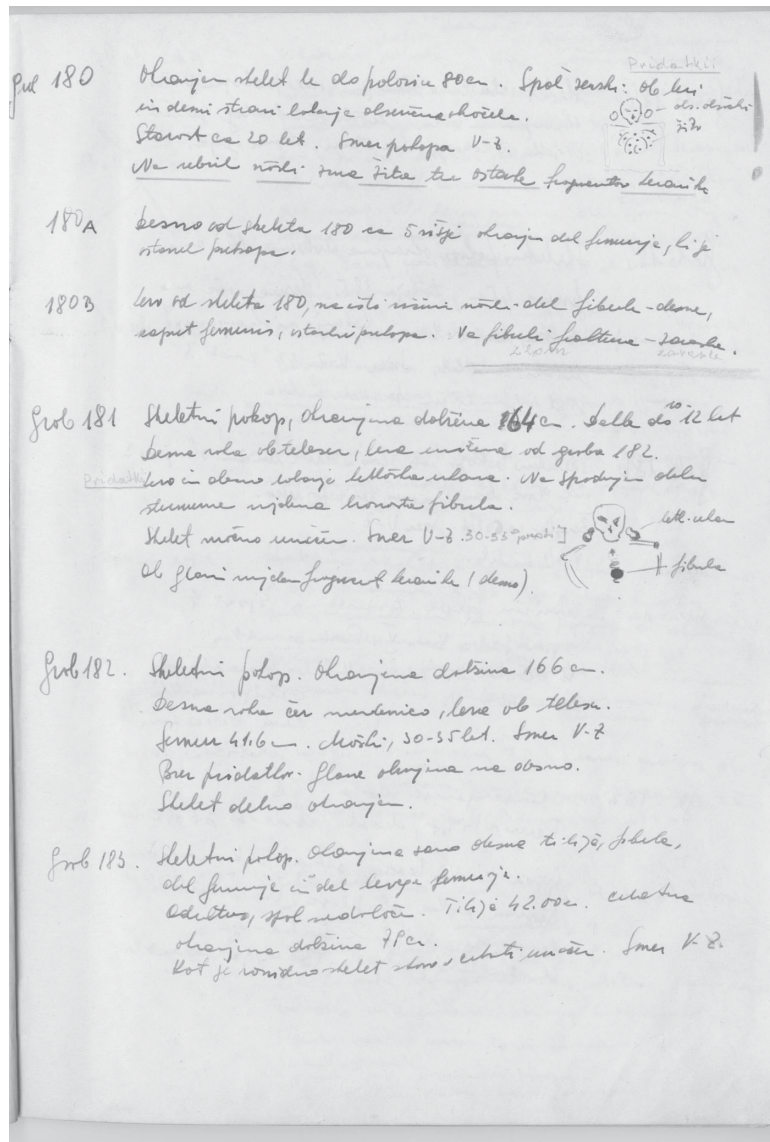 Pridatki
Grob 180 Ohranjen skelet le do polovice 80 cm. Spol ženski: Ob levi
in desni strani lobanje obsenčna obročka.
Starost ca 20 let. Smer pokopa V-Z.
obs. obročki
žito
Na rebrih našli zrna žita ter ostanke fragmentov keramike
180A Desno od skeleta 180 ca 5 višje ohranjen del femurja, ki je
ostanek pokopa.
180B Levo od skeleta 180, na isti višini našli del fibule - desne,
zopet femuris, ostanki pokopa. Na fibuli fraktura - zarasla.
zlom zarasla
Grob 181 Skeletni pokop, Ohranjena dolžina 164 cm. 10-12 let
Desna roka ob telesu, leva uničena od groba 182.
Pridatki Levo in desno lobanje uhana. Na spodnjem delu
sternuma najdena fibula.
Skelet močno uničen. Smer V-Z. 30-35
uhan
fibula
Ob glavi najden fragment keramike (desno).
Grob 182. Skeletni pokop. Ohranjena dolžina 166 cm.
Desna roka čez medenico, leva ob telesu.
Femur 41.6 cm. Moški, 30-35 let. Smer V-Z
Brez pridatkov. Glava obrnjena na desno.
Skelet delno ohranjen.
Grob 183. Skeletni pokop. Ohranjena samo desna tibija, fibula,
del femurja in del levega femurja.
Odrastao, spol nedoločen. Tibija 42.00 cm. celotna
ohranjena dolžina 78 cm.
Kot je razvidno skelet skoro v celoti uničen. Smer V-Z.